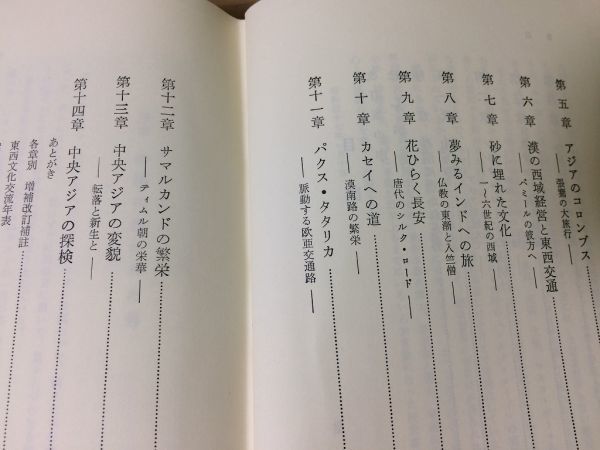 第五章　アジアのコロンブス
――張騫の大旅行――
第六章　漢の西域経営と東西交通
――パミールの彼方へ――
第七章　砂に埋れた文化
――一〜六世紀の西域――
第八章　夢みるインドへの旅
――仏教の東漸と入竺僧――
第九章　花ひらく長安
――唐代のシルク・ロード――
第十章　カセイへの道
――漠南路の繁栄――
第十一章　パクス・タタリカ
――脈動する欧亜交通路――
第十二章　サマルカンドの繁栄
――ティムル朝の栄華――
第十三章　中央アジアの変貌
――転落と新生と――
第十四章　中央アジアの探検
あとがき
各章別　増補改訂補註
東西文化交流年表